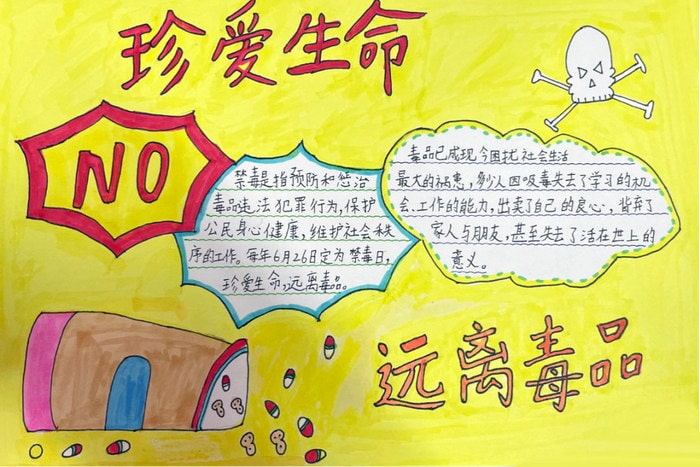 珍爱生命
NO
禁毒是指预防和惩治
毒品违法犯罪行为,保护
公民身心健康,维护社会秩
序的工作。每年6月26日定为禁毒日,
珍爱生命,远离毒品。
毒品已成现今困扰社会生活
最大的祸患,多少人因吸毒失去了学习的机
会、工作的能力,出卖了自己的良心,背弃了
家人与朋友,甚至失去了活在世上的
意义。
远离毒品